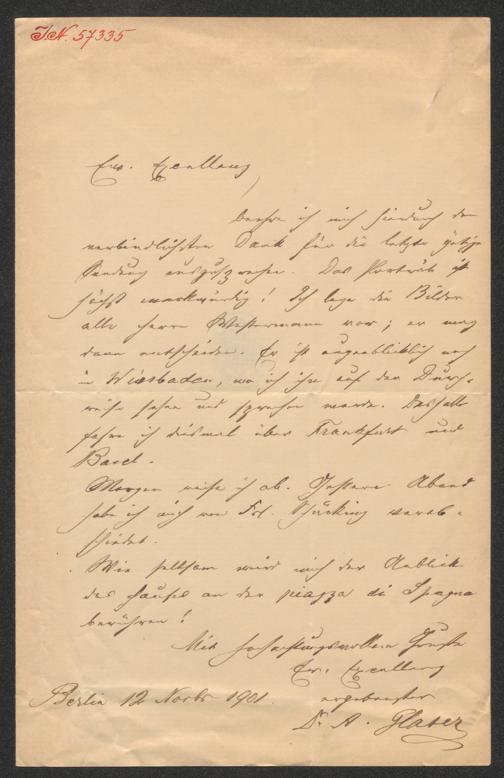 I.N. 57335
Ew. Excellenz,
beehre ich mich hiedurch den
verbindlichsten Dank für die letzte gütige
Sendung auszusprechen. Das Porträt ist
höchst merkwürdig! Ich lege die Bilder
alle Herrn Westermann vor; er mag
dann entscheiden. Er ist augenblicklich noch
in Wiesbaden, wo ich ihn auf der Durch-
reise sehen und sprechen werde. Deshalb
fahre ich diesmal über Frankfurt und
Basel.
Morgen reise ich ab. Gestern Abend
habe ich mich von Frl. Schücking verab-
schiedet.
Wie seltsam wird mich der Anblick
des Hauses an der piazza di Spagna
berühren!
Mit hochachtungsvollem Gruße
Ew. Excellenz
ergebenster
Dr. A. Glaser
Berlin 12 Novbr 1901.